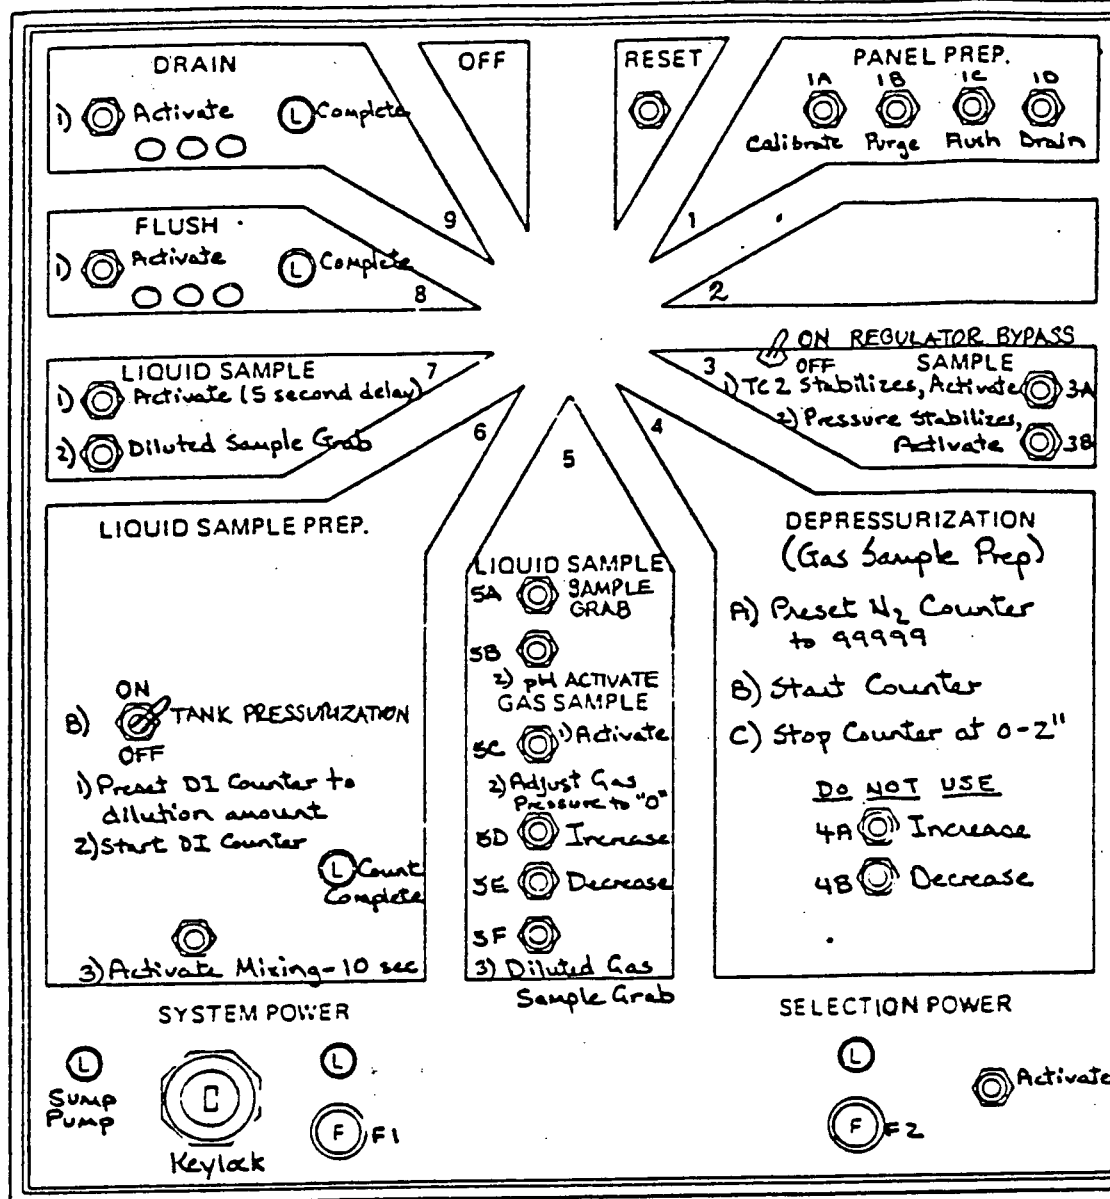 DRAIN
1) Activate
L Complete
9
OFF
RESET
PANEL PREP.
1A 1B 1C 1D
Calibrate Purge Flush Drain
1
FLUSH
1) Activate
L Complete
8
2
LIQUID SAMPLE
7
1) Activate (5 second delay)
2) Diluted Sample Grab
ON REGULATOR BYPASS
OFF
3
SAMPLE
1) TC2 Stabilizes, Activate 3A
2) Pressure Stabilizes,
Activate 3B
6
LIQUID SAMPLE PREP.
ON
B) TANK PRESSURIZATION
OFF
1) Preset DI Counter to
dilution amount
2) Start DI Counter
L Count
Complete
3) Activate Mixing-10 sec
5
LIQUID SAMPLE
5A SAMPLE
GRAB
5B
2) pH ACTIVATE
GAS SAMPLE
5C 1) Activate
2) Adjust Gas
Pressure to "0"
5D Increase
5E Decrease
5F
3) Diluted Gas
Sample Grab
4
DEPRESSURIZATION
(Gas Sample Prep)
A) Preset N2 Counter
to 99999
B) Start Counter
C) Stop Counter at 0-2"
DO NOT USE
4A Increase
4B Decrease
SYSTEM POWER
L
Sump
Pump
Keylock
L
F F1
SELECTION POWER
L
F F2
Activate